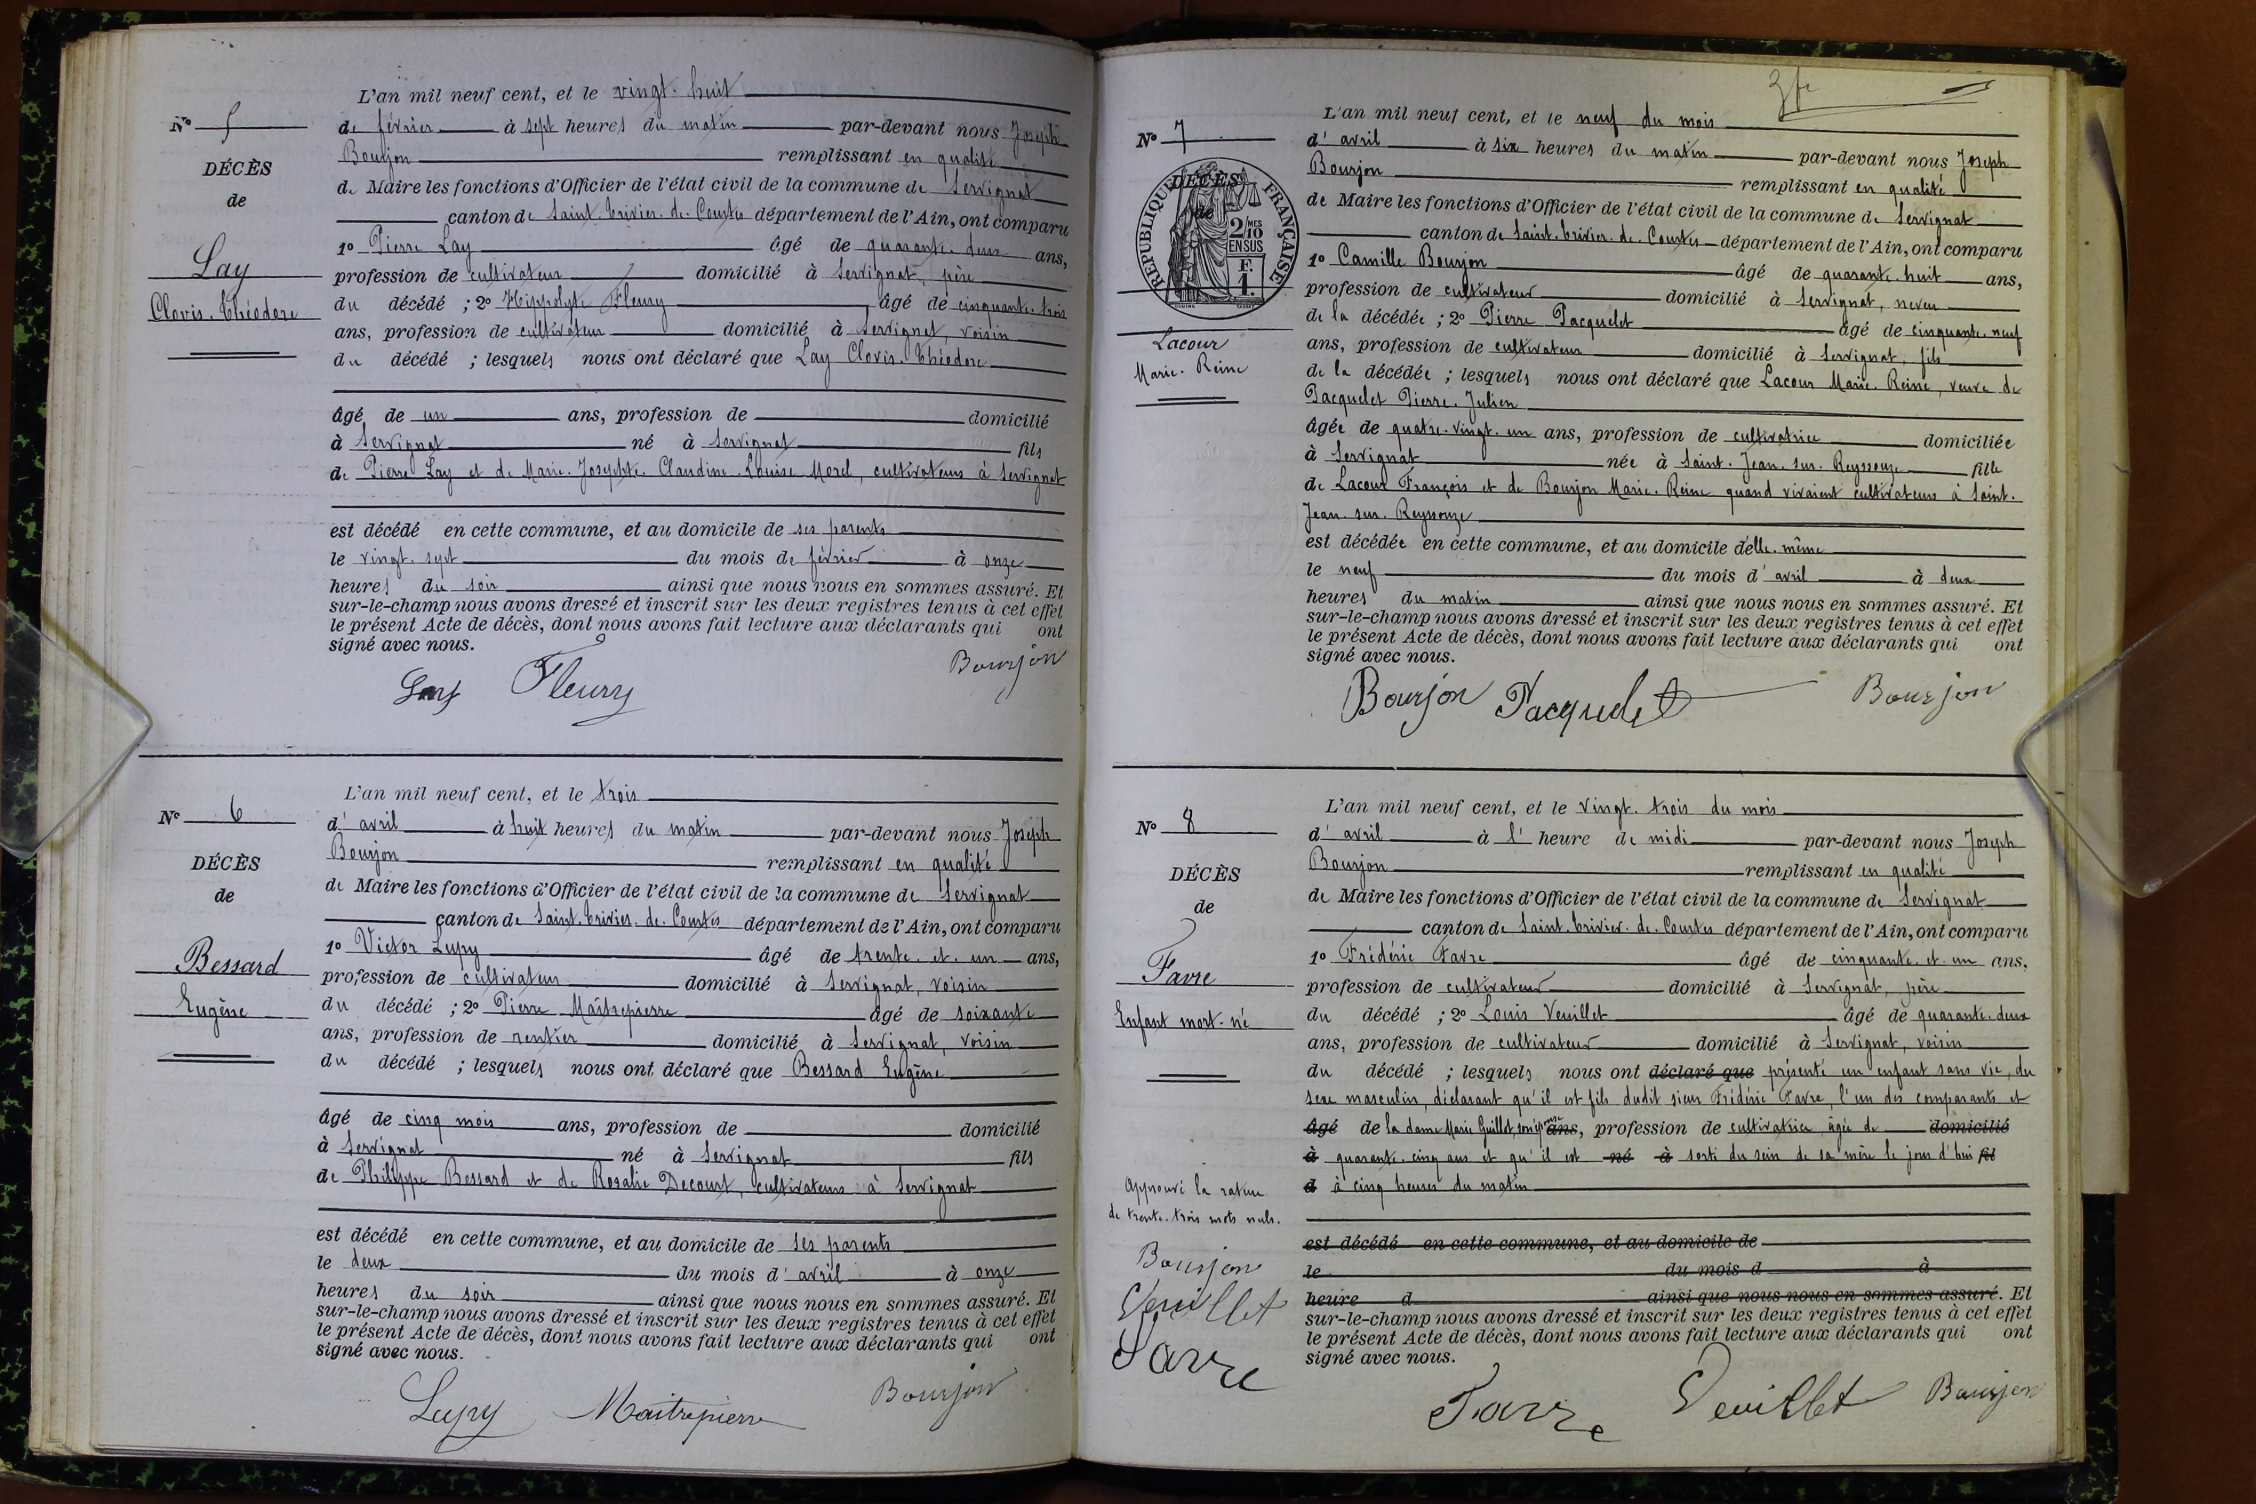 L'an mil neuf cent, et le vingt-huit
N° 5
de février à sept heures du matin par-devant nous Joseph
Bourjon remplissant en qualité
DÉCÈS
de Maire les fonctions d'Officier de l'état civil de la commune de Servignat
de
canton de Saint-Trivier-de-Courtes département de l'Ain, ont comparu
1° Pierre Lay âgé de quarante-deux ans,
Lay
profession de cultivateur domicilié à Servignat, père
Clovis-Théodore
du décédé ; 2° Hippolyte Fleury âgé de cinquante-trois
ans, profession de cultivateur domicilié à Servignat, voisin
du décédé ; lesquels nous ont déclaré que Lay Clovis-Théodore
âgé de un ans, profession de domicilié
à Servignat né à Servignat fils
de Pierre Lay et de Marie-Josephte-Claudine-Louise Morel, cultivateurs à Servignat
est décédé en cette commune, et au domicile de ses parents
le vingt-sept du mois de février à onze
heures du soir ainsi que nous nous en sommes assuré. Et
sur-le-champ nous avons dressé et inscrit sur les deux registres tenus à cet effet
le présent Acte de décès, dont nous avons fait lecture aux déclarants qui ont
signé avec nous.
Lay Fleury Bourjon
L'an mil neuf cent, et le trois
N° 6
d'avril à huit heures du matin par-devant nous Joseph
Bourjon remplissant en qualité
DÉCÈS
de Maire les fonctions d'Officier de l'état civil de la commune de Servignat
de
canton de Saint-Trivier-de-Courtes département de l'Ain, ont comparu
1° Victor Lupy âgé de trente-et-un ans,
Bessard
profession de cultivateur domicilié à Servignat, voisin
Eugène
du décédé ; 2° Pierre Maîtrepierre âgé de soixante
ans, profession de rentier domicilié à Servignat, voisin
du décédé ; lesquels nous ont déclaré que Bessard Eugène
âgé de cinq mois ans, profession de domicilié
à Servignat né à Servignat fils
de Philippe Bessard et de Rosalie Decourt, cultivateurs à Servignat
est décédé en cette commune, et au domicile de ses parents
le deux du mois d'avril à onze
heures du soir ainsi que nous nous en sommes assuré. Et
sur-le-champ nous avons dressé et inscrit sur les deux registres tenus à cet effet
le présent Acte de décès, dont nous avons fait lecture aux déclarants qui ont
signé avec nous.
Lupy Maitrepierre Bourjon
L'an mil neuf cent, et le neuf du mois
N° 7
d'avril à six heures du matin par-devant nous Joseph
Bourjon remplissant en qualité
DÉCÈS
de
RÉPUBLIQUE FRANÇAISE
2/10 MES
EN SUS
F.
1.
de Maire les fonctions d'Officier de l'état civil de la commune de Servignat
canton de Saint-Trivier-de-Courtes département de l'Ain, ont comparu
1° Camille Bourjon âgé de quarante-huit ans,
profession de cultivateur domicilié à Servignat, neveu
de la décédée ; 2° Pierre Pacquelet âgé de cinquante-neuf
Lacour
ans, profession de cultivateur domicilié à Servignat, fils
Marie-Reine
de la décédée ; lesquels nous ont déclaré que Lacour Marie-Reine, veuve de
Pacquelet Pierre-Julien
âgée de quatre-vingt-un ans, profession de cultivatrice domiciliée
à Servignat née à Saint-Jean-sur-Reyssouze fille
de Lacour François et de Bourjon Marie-Reine quand vivaient cultivateurs à Saint-
Jean-sur-Reyssouze
est décédée en cette commune, et au domicile d'elle-même
le neuf du mois d'avril à deux
heures du matin ainsi que nous nous en sommes assuré. Et
sur-le-champ nous avons dressé et inscrit sur les deux registres tenus à cet effet
le présent Acte de décès, dont nous avons fait lecture aux déclarants qui ont
signé avec nous.
Bourjon Pacquelet Bourjon
L'an mil neuf cent, et le vingt-trois du mois
N° 8
d'avril à l'heure de midi par-devant nous Joseph
Bourjon remplissant en qualité
DÉCÈS
de Maire les fonctions d'Officier de l'état civil de la commune de Servignat
de
canton de Saint-Trivier-de-Courtes département de l'Ain, ont comparu
1° Frédéric Favre âgé de cinquante-et-un ans,
Favre
profession de cultivateur domicilié à Servignat, père
Enfant mort-né
du décédé ; 2° Louis Veuillet âgé de quarante-deux
ans, profession de cultivateur domicilié à Servignat, voisin
du décédé ; lesquels nous ont déclaré que présenté un enfant sans vie, du
sexe masculin, déclarant qu'il est fils dudit sieur Frédéric Favre, l'un des comparants et
âgé de la dame Marie Guillot, son épouse ans, profession de cultivatrice âgée de domicilié
à quarante-cinq ans et qu'il est né à sorti du sein de sa mère le jour d'hui fil
d à cinq heures du matin
Approuvé la rature
de trente-trois mots nuls.
est décédé en cette commune, et au domicile de
Bourjon
le du mois d à
Veuillet
heure d ainsi que nous nous en sommes assuré. Et
sur-le-champ nous avons dressé et inscrit sur les deux registres tenus à cet effet
Favre
le présent Acte de décès, dont nous avons fait lecture aux déclarants qui ont
signé avec nous.
Favre Veuillet Bourjon